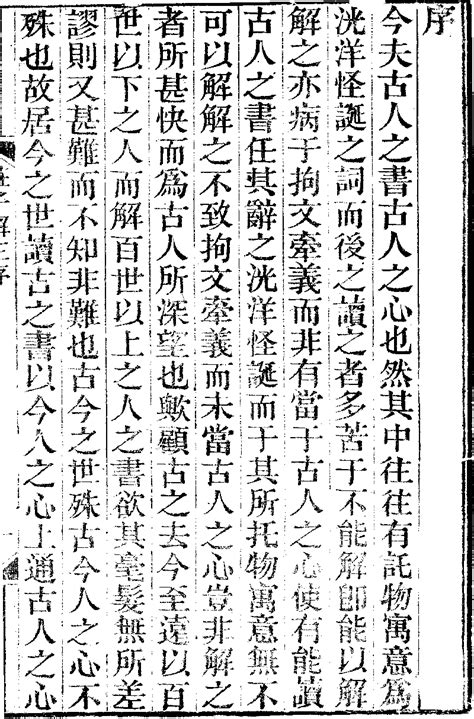 序
今夫古人之書古人之心也然其中往往有託物寓意爲
洸洋怪誕之詞而後之讀之者多苦于不能解卽能以解
解之亦病于拘文牽義而非有當于古人之心使有能讀
古人之書任其辭之洸洋怪誕而于其所托物寓意無不
可以解解之不致拘文牽義而未當古人之心豈非解之
者所甚快而爲古人所深望也歟顧古之去今至遠以百
世以下之人而解百世以上之人之書欲其毫髮無所差
謬則又甚難而不知非難也古今之世殊古今人之心不
殊也故居今之世讀古之書以今人之心上通古人之心